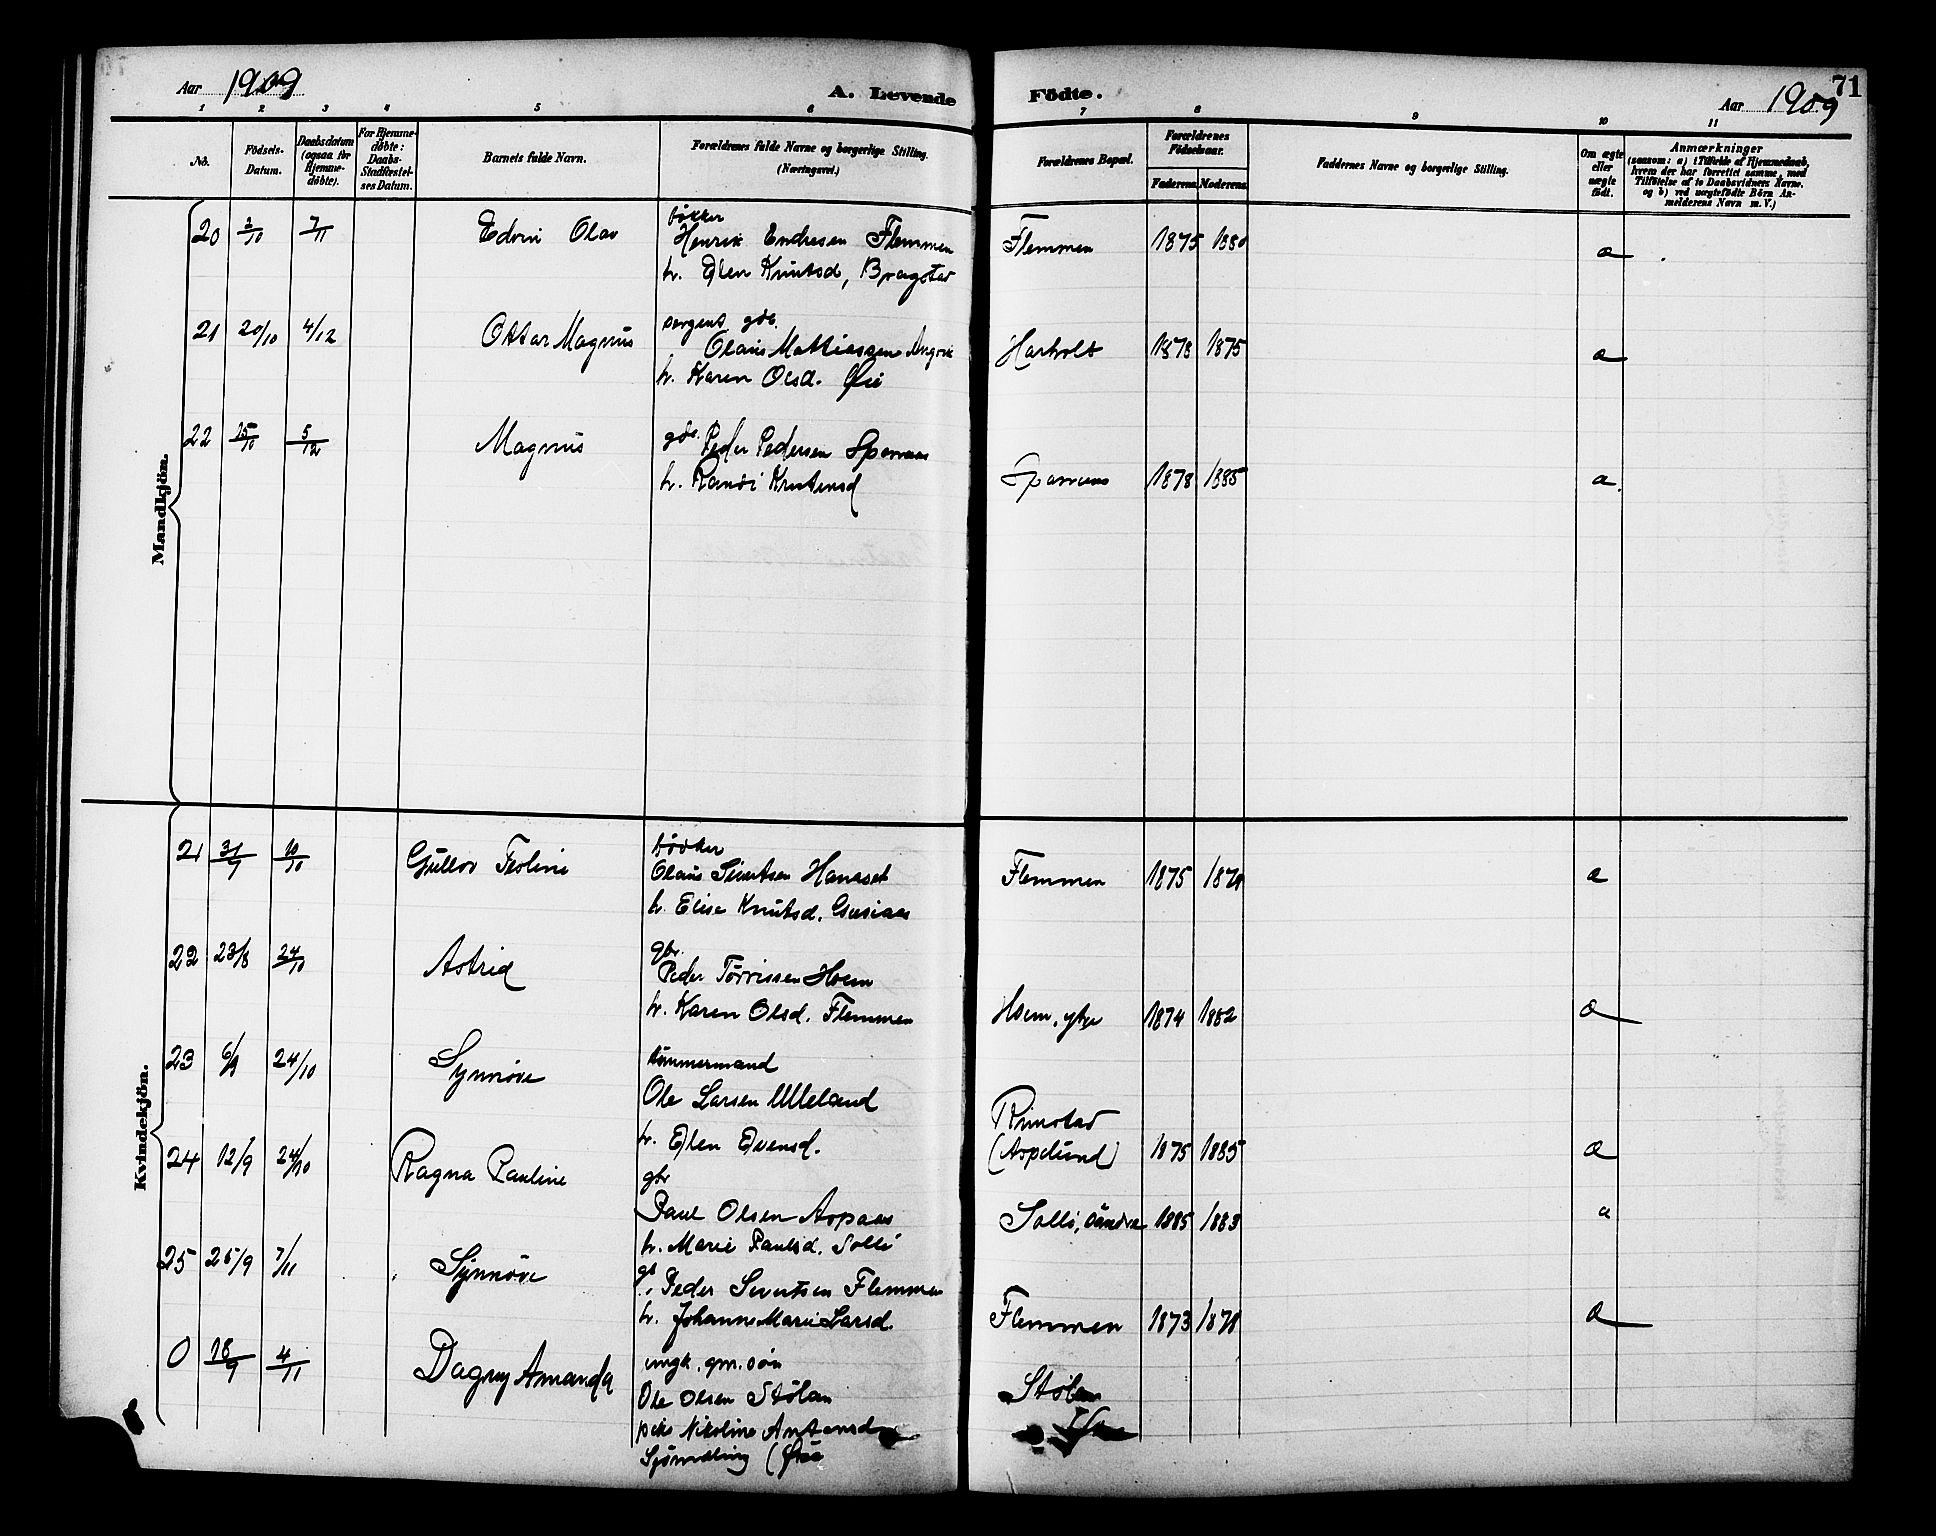 Aar 1909
A. Levende Födte.
Aar 1909
71
1 2 3 4 5 6 7 8 9 10 11
No.
Födsels-
Datum.
Daabsdatum
(ogsaa for
Hjemme-
döbte).
For Hjemme-
döbte:
Daabs-
Stadfæstel-
ses Datum.
Barnets fulde Navn.
Forældrenes fulde Navne og borgerlige Stilling.
(Næringsvei.)
Forældrenes Bopæl.
Forældrenes
Födselsaar.
Faderens. Moderens.
Faddernes Navne og borgerlige Stilling.
Om ægte
eller
uægte
født.
Anmærkninger
(saasom: a) i Tilfælde af Hjemmedaab,
hvem der har forrettet samme, med
Tilföielse af to Daabsvidners Navne.
og b) ved uægtefödte Börn An-
melderens Navn m. V.)
Mandkjön.
20 2/10 7/11 Edvin Olav
bøkker
Henrik Endresen Flemmen
h. Elen Knutsd, Bragstad
Flemmen 1875 1880 a
21 20/10 4/12 Ottar Magnus
sergent gbr.
Olaus Mathiassen Angvik
h. Karen Olsd. Øie
Harholt 1878 1875 a
22 25/10 5/12 Magnus
gbr. Peder Pedersen
h. Randi
1878 1885 a
Kvindekjön.
21 31/7 10/10 Gullov
bødker
Olaus Sivertsen Hanaset
h. Elise Knutsd.
Flemmen 1875 a
22 23/8 24/10 Astrid
gbr.
Peder Tørrissen Hoem
h. Karen Olsd. Flemmen
Hoem, ytre 1874 1882 a
23 6/9 24/10 Synnøve
tømmermand
Ole Larsen Ulleland
h. Elen Evensd.
Rimstad
(Aspelund) 1875 1885 a
24 12/9 24/10 Ragna Pauline
gbr
Paul Olsen Aspaas
h. Marie Paulsd. Solli
Solli, 1885 1883 a
25 25/9 7/11 Synnøve
gb
Peder Sivertsen Flemmen
h. Johanne Marie Larsd.
Flemmen 1873 1878 a
0 18/9 4/11 Dagny Amanda
ungk. gm. søn
Ole Olsen Stølan
pike Nikoline Antonsd
(Øie
Stølan